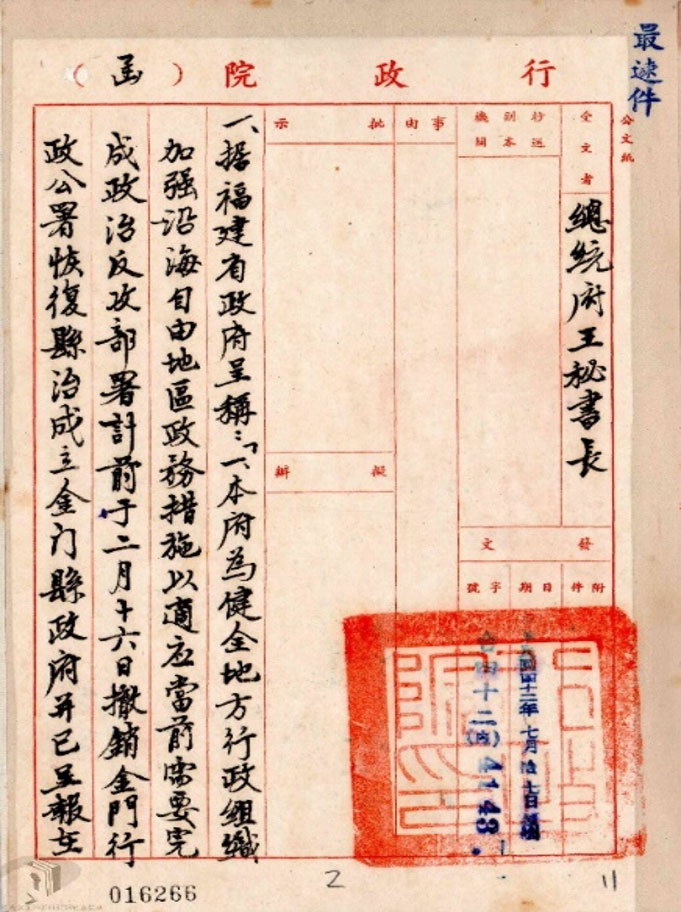 最速件
公文紙
行政院（函）
受文者
總統府王秘書長
抄送副本機關
事由
批示
擬辦
發文
附件
日期
字號
中華民國四十二年七月拾七日
台四十二(內)4148.
一、據福建省政府呈稱：「一、本府為健全地方行政組織
加强沿海自由地區政務措施以適应當前需要完
成政治反攻部署計前于二月十六日撤銷金門行
政公署恢復縣治成立金门縣政府并已呈報在
016266
2
11